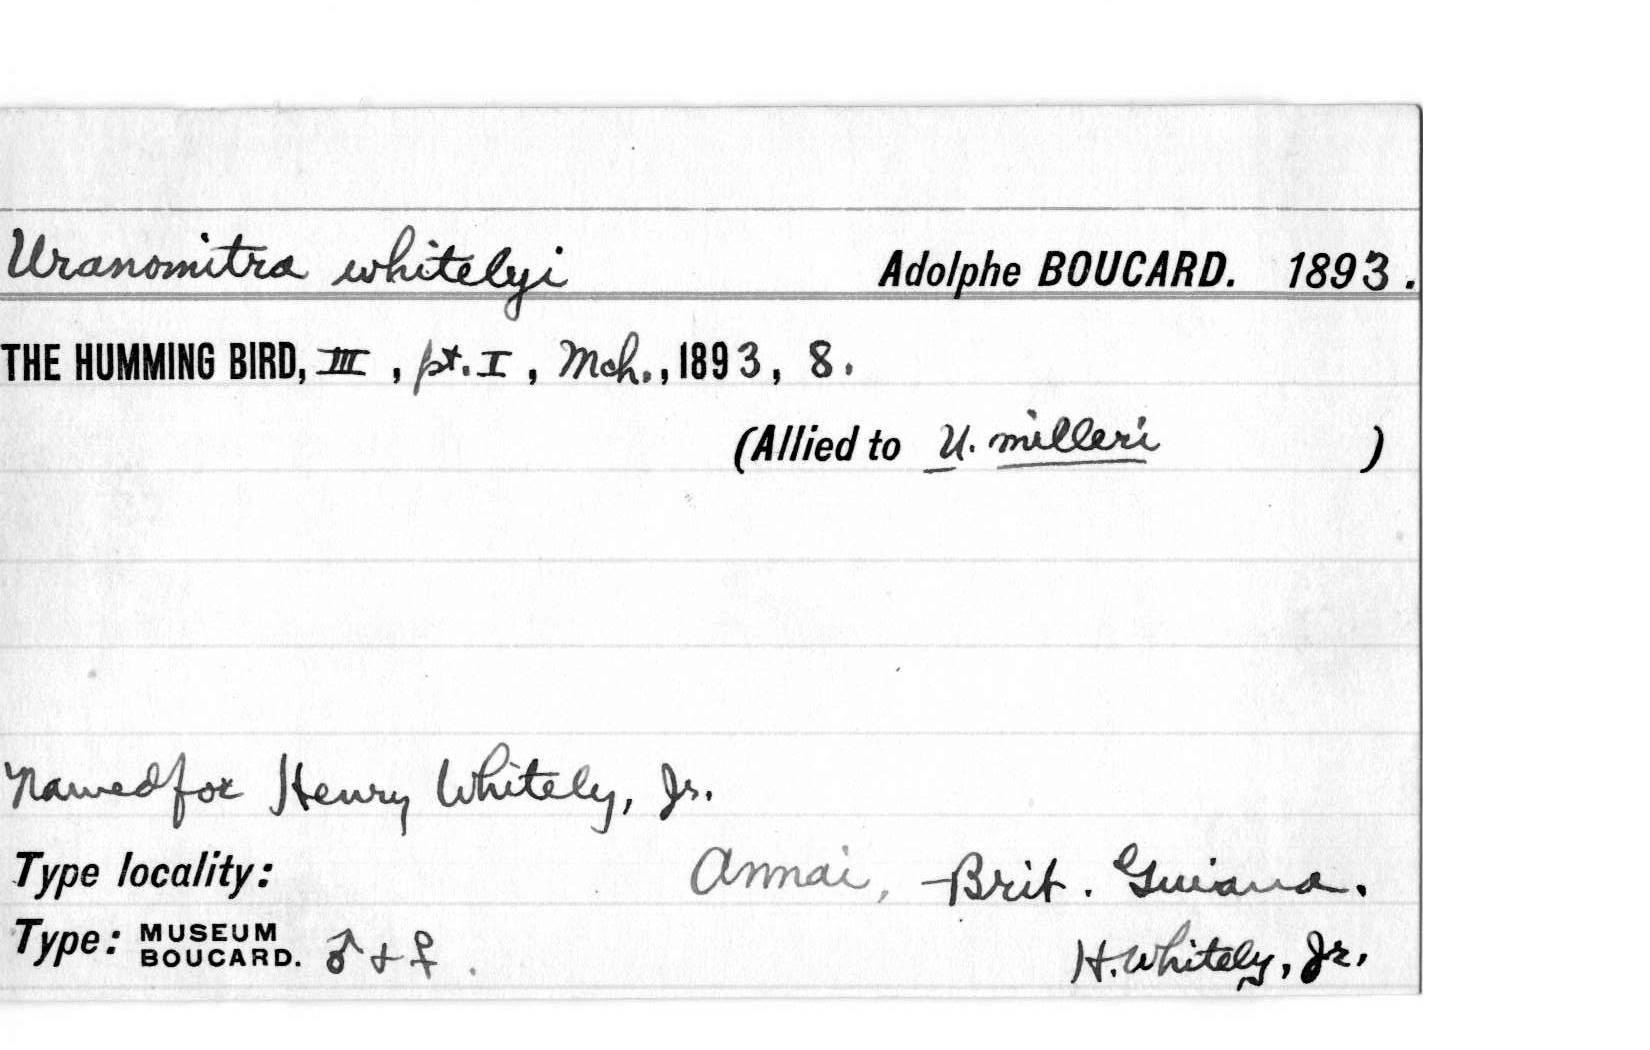 Uranomitra whitelyi Adolphe BOUCARD. 1893.
THE HUMMING BIRD, III, pt. I, Mch., 1893, 8.
(Allied to U. milleri )
Named for Henry Whitely, Jr.
Type locality: Annai, Brit. Guiana.
Type: MUSEUM BOUCARD. ♂ + ♀. H. Whitely, Jr.